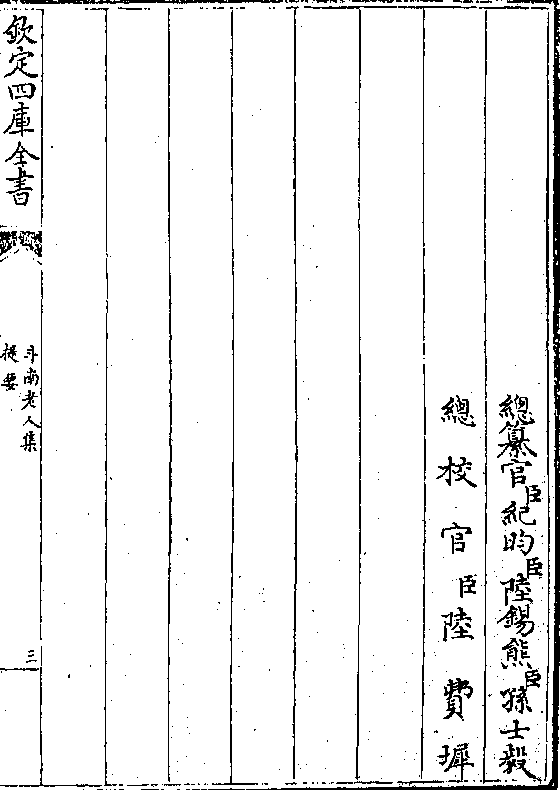 總纂官臣紀昀臣陸錫熊臣孫士毅
總校官臣陸費墀
欽定四庫全書
斗南老人集
提要
三